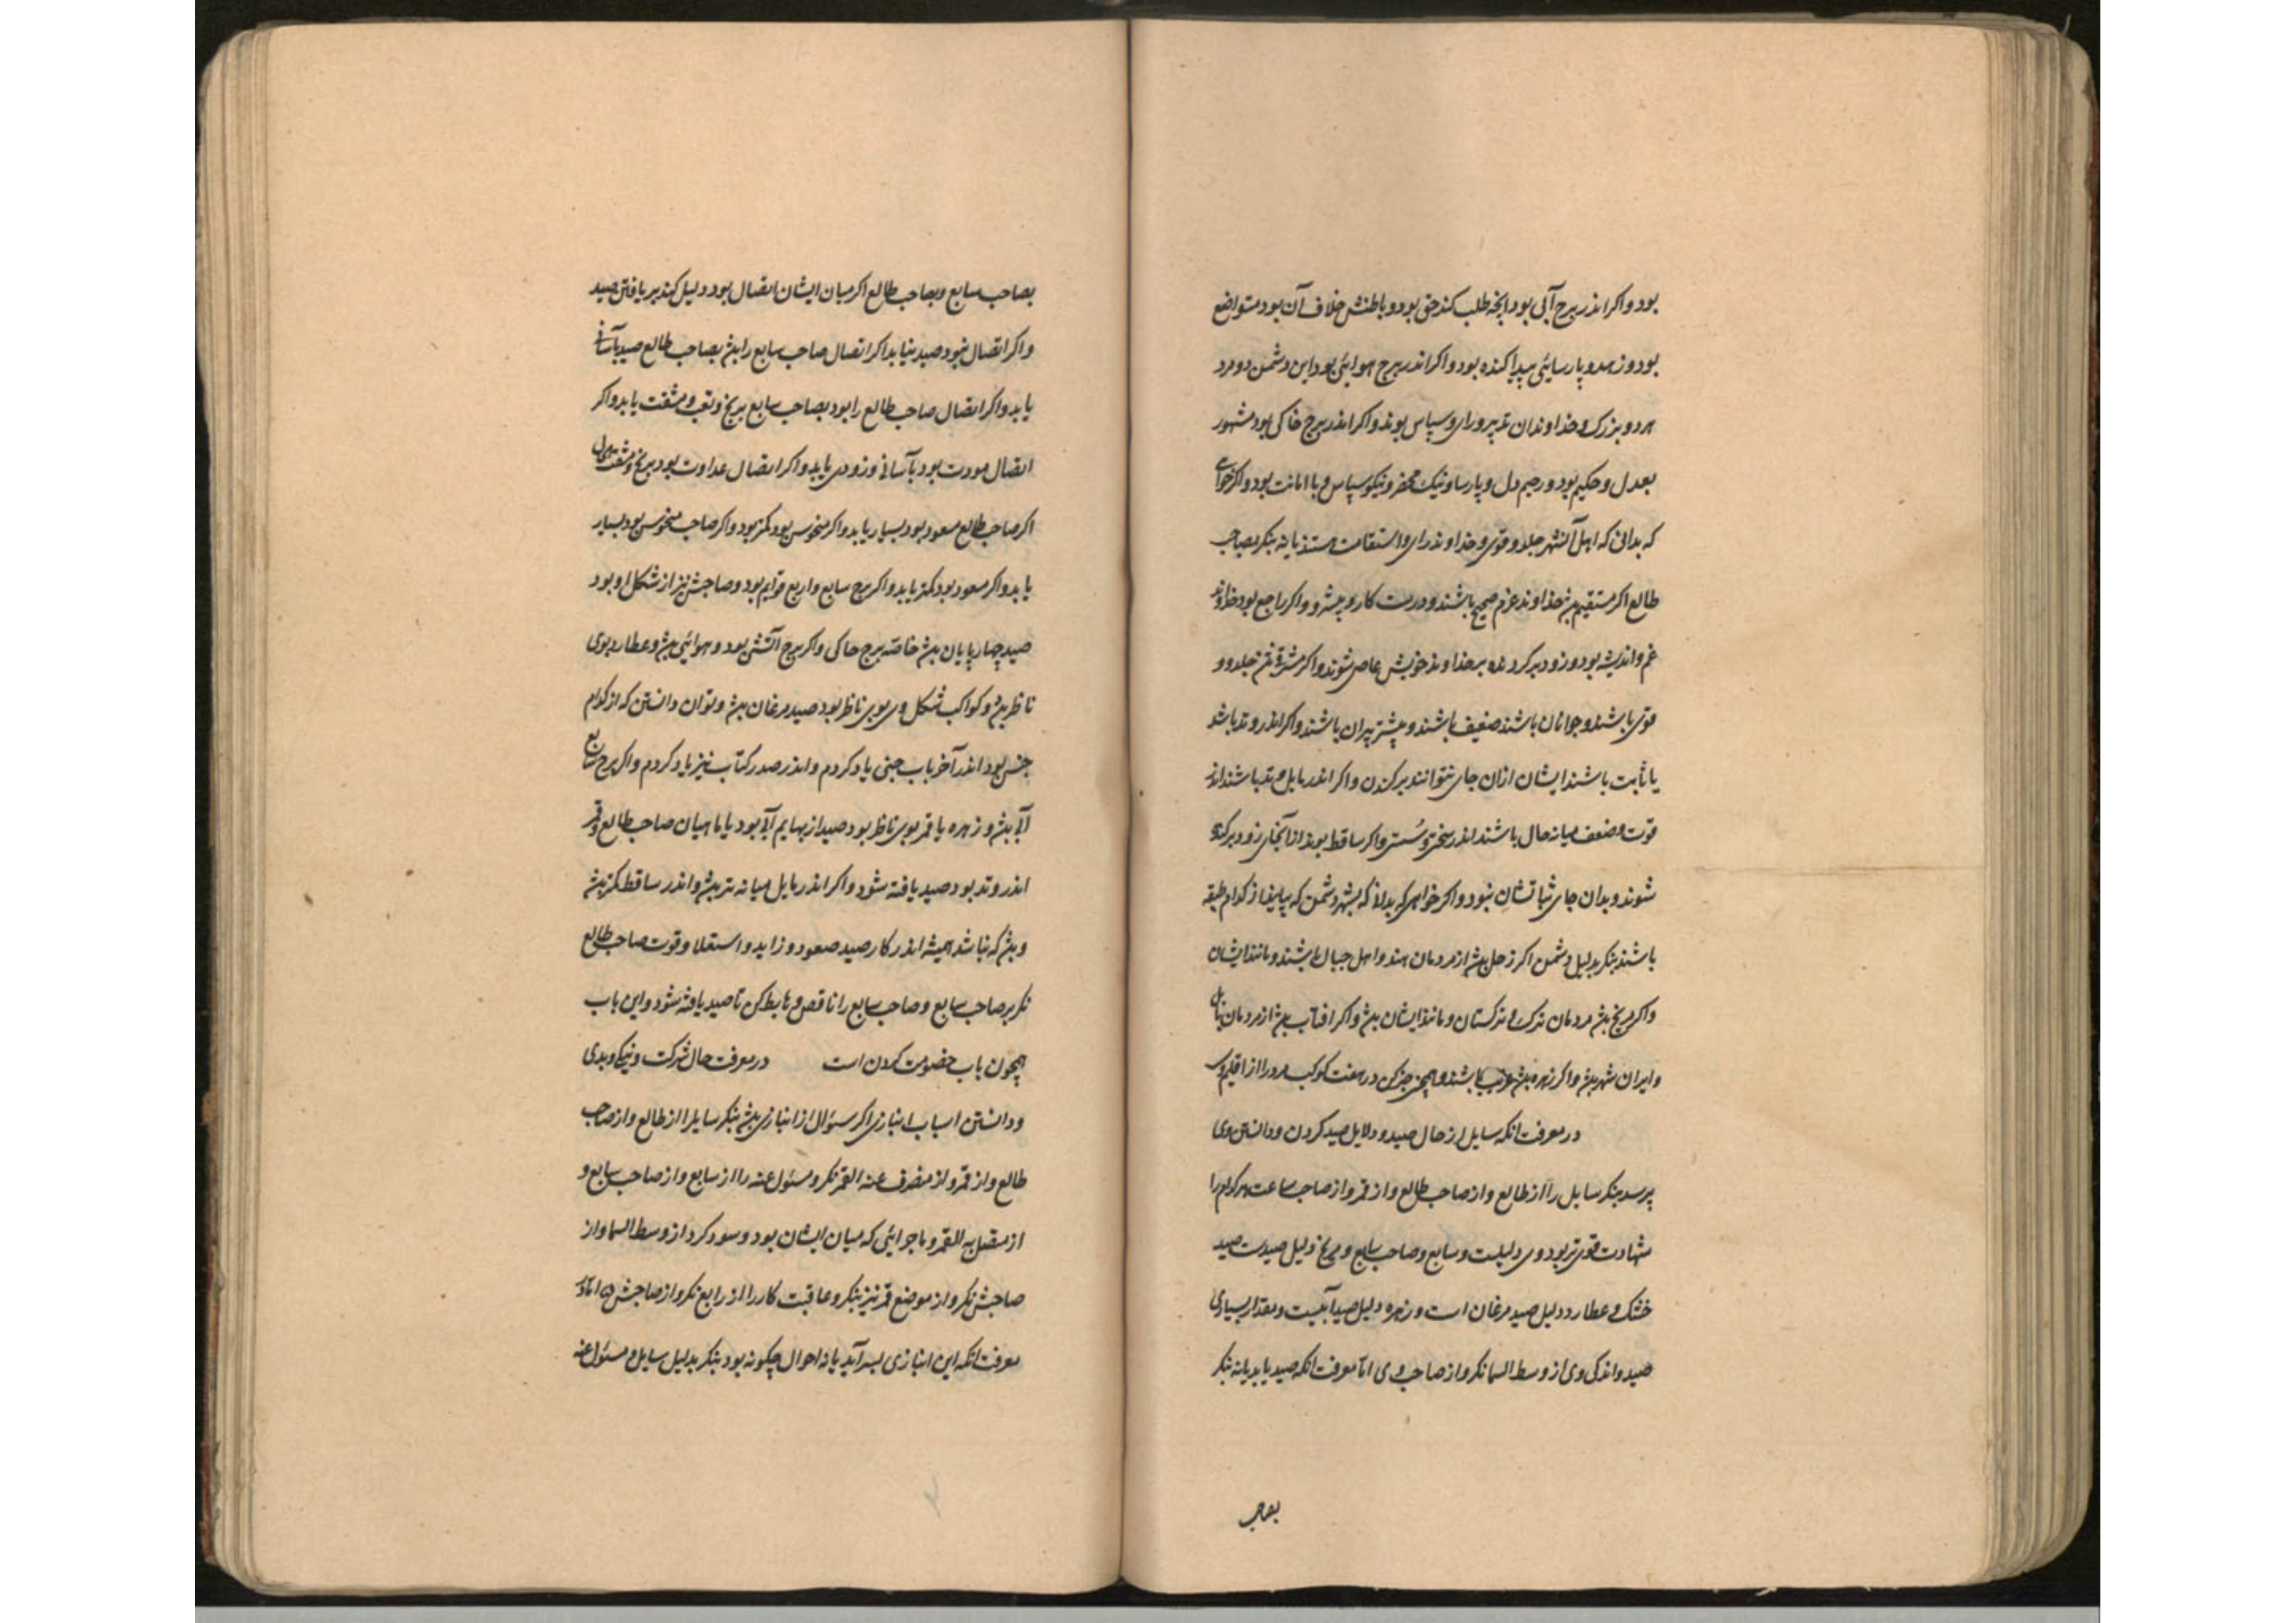 بود و اکر اندر برج آبی بود انچه طلب کند حق بود و باطنش خلاف آن بود متواضع
بود و زهد و پارسایئی پیدا کننده بود و اکر اندر برج هوایئی بود این دشمن دو مرد
هر دو بزرک و خداوندان تدبیر و رای و سپاس بوند و اکر اندر برج خاکی بود مشهور
بعدل و حکیم بود و رحیم دل و پارسا و نیک محضر و نیکو سپاس و با امانت بود و اکر خواهی
که بدانی که اهل آنشهر جلد و قوی و خداوند رای و استقامت هستند یا نه بنکر بصاحب
طالع اکر مستقیم بش خداوند عزم صحیح باشند و درست کار و پیشرو و اکر راجع بود خداوند
غم و اندیشه بود و زود برکردنده بر خداوند خویش عاصی شوند و اکر مشرقی جلد و
قوی باشند و جوانان باشند ضعیف باشند و بیشتر پیران باشند و اکر اندر وتد باشد
یا ثابت باشند ایشان ازان جای نتوانند برکندن و اکر اندر مایل وتد باشند اندر
قوت و ضعف میانه حال باشند اندر سختی و سستی و اکر ساقط بوند از آنجای زود برکنده
شوند و بدان جای ثباتشان نبود و اکر خواهی که بدانی که بشهر دشمن که بیایند از کدام طبقه
باشند بنکر بدلیل دشمن اکر زحل بش از مردمان هند و اهل جبال باشند و مانند ایشان
واکر مریخ بش مردمان ترک و ترکستان و مانند ایشان بش و اکر افتاب بش از مردمان بابل
و ایران شهر بش و اکر زهره بش عرب باشند و همچنین حکم کن در هفت کوکب هر را از اقلیم وی
در معرفت انکه سایل از حال صید و دلایل صید کردن و دانستن وی
پرسد بنکر سایل را از طالع و از صاحب طالع و از قمر و از صاحب ساعت هر کدام را
شهادت قوی تر بود وی دلیلست و سابع و صاحب سابع و مریخ دلیل صیدست صید
خشک و عطارد دلیل صید مرغان است و زهره دلیل صید آبیست و مقدار بسیاری
صید و اندکی وی از وسط السما نکر و از صاحب وی اما معرفت انکه صید یابد یا نه بنکر
بصاحب
بصاحب سابع و بصاحب طالع اکر میان ایشان اتصال بود دلیل کند بر یافتن صید
واکر اتصال نبود صید نیابد اکر اتصال صاحب سابع را بش بصاحب طالع صید بآسانی
یابد و اکر اتصال صاحب طالع را بود بصاحب سابع برنج و تعب و مشقت یابد و اکر
اتصال مودت بود بآسانی و زودی یابد و اکر اتصال عداوت بود برنج و مشقت
اکر صاحب طالع مسعود بود بسیار یابد و اکر منحوس بود کمتر بود و اکر صاحب منحوس بود بسیار
یابد و اکر مسعود بود کمتر یابد و اکر برج سابع و اربع قوایم بود و صاحبش نیز از شکل او بود
صید چهارپایان بش خاصه برج خاکی و اکر برج آتشی بود و هوایئی بش و عطارد بوی
ناظر بش و کواکب شکل وی بوی ناظر بود صید مرغان بش و توان دانستن که از کدام
جنس بود اندر آخر باب جنی یاد کردم و اندر صدر کتاب نیز یاد کردم و اکر برج سابع
آبی بش و زهره یا قمر بوی ناظر بود صید از بهایم آبی بود یا ماهیان صاحب طالع و قمر
اندر وتد بود صید یافته شود و اکر اندر مایل میانه تر بش و اندر ساقط کمتر بش
و بش که نباشد همیشه اندر کار صید صعود و زاید و استعلا و قوت صاحب طالع
نکر بر صاحب سابع و صاحب سابع را ناقص و هابط کن تا صید یافته شود و این باب
همچون باب خصومت کردن است در معرفت حال شرکت و نیکی و بدی
و دانستن اسباب انبازی اکر سئوال از انبازی بش بنکر سایل را از طالع و از صاحب
طالع و از قمر و از منصرف عنه القمر نکر و مسئول عنه را از سابع و از صاحب سابع و
از متصل به القمر و ماجرایئی که میان ایشان بود و سود کرد از وسط السما و از
صاحبش نکر و از موضع قمر نیز بنکر و عاقبت کار را از رابع نکر و از صاحبش اما اندر
معرفت انکه این انبازی بسر آید یا نه احوال چکونه بود بنکر بدلیل سایل و مسئول عنه